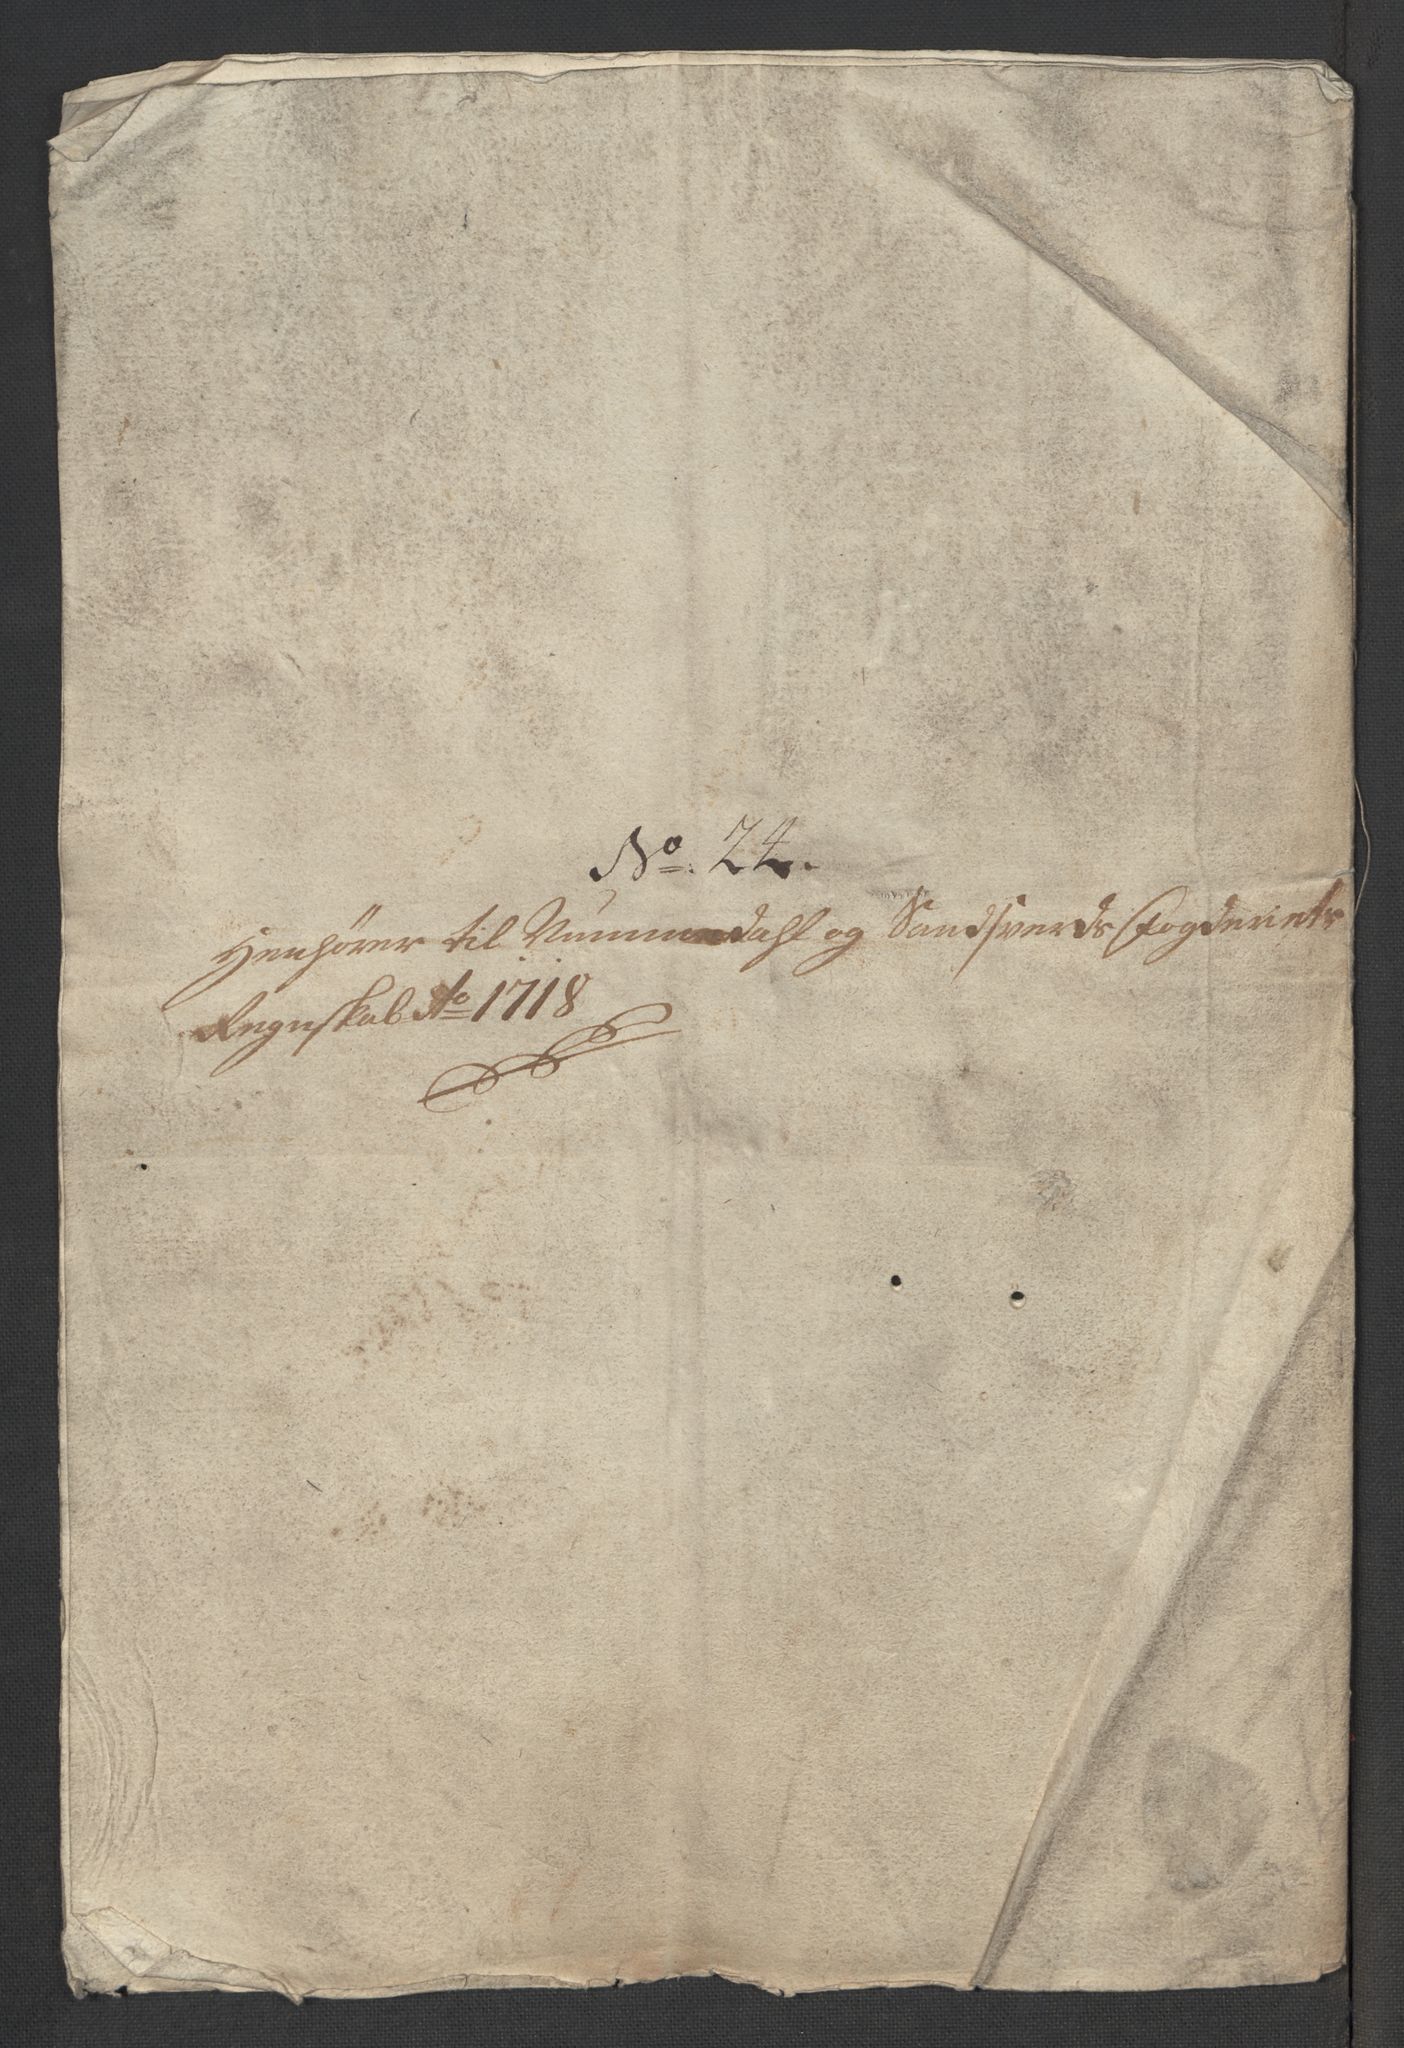 No. 24.
Henhörer til Nummedahl og Sandsverds Fogderiets
Regnskab Ao 1718